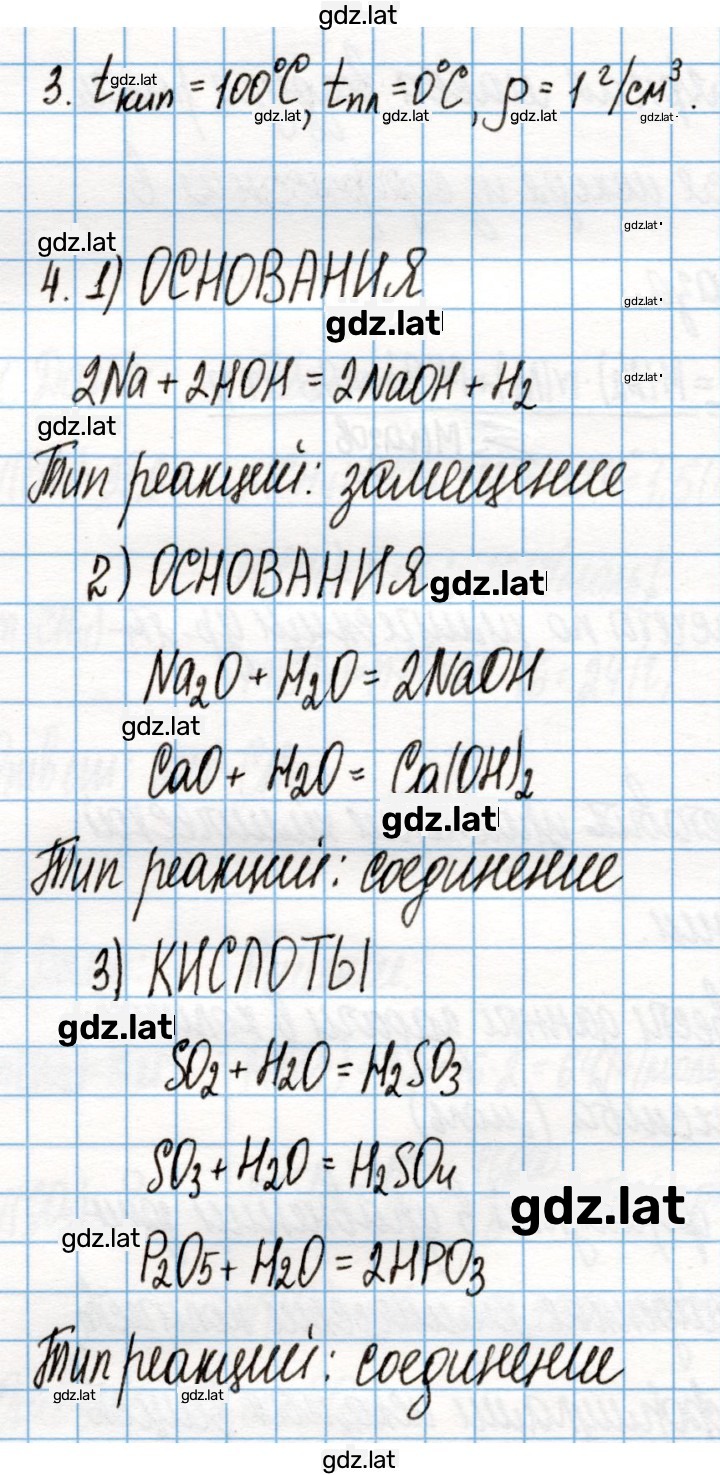 gdz.lat
3. tкип = 100°C, tпл = 0°C, ρ = 1 г/см³.
gdz.lat
gdz.lat gdz.lat gdz.lat gdz.lat
gdz.lat
gdz.lat
4. 1) ОСНОВАНИЯ
gdz.lat
gdz.lat
2Na + 2HOH = 2NaOH + H₂
gdz.lat
gdz.lat
Тип реакций: замещение
2) ОСНОВАНИЯ
gdz.lat
Na₂O + H₂O = 2NaOH
gdz.lat
CaO + H₂O = Ca(OH)₂
gdz.lat
Тип реакций: соединение
3) КИСЛОТЫ
gdz.lat
SO₂ + H₂O = H₂SO₃
SO₃ + H₂O = H₂SO₄
gdz.lat
gdz.lat
P₂O₅ + H₂O = 2HPO₃
Тип реакций: соединение
gdz.lat gdz.lat
gdz.lat